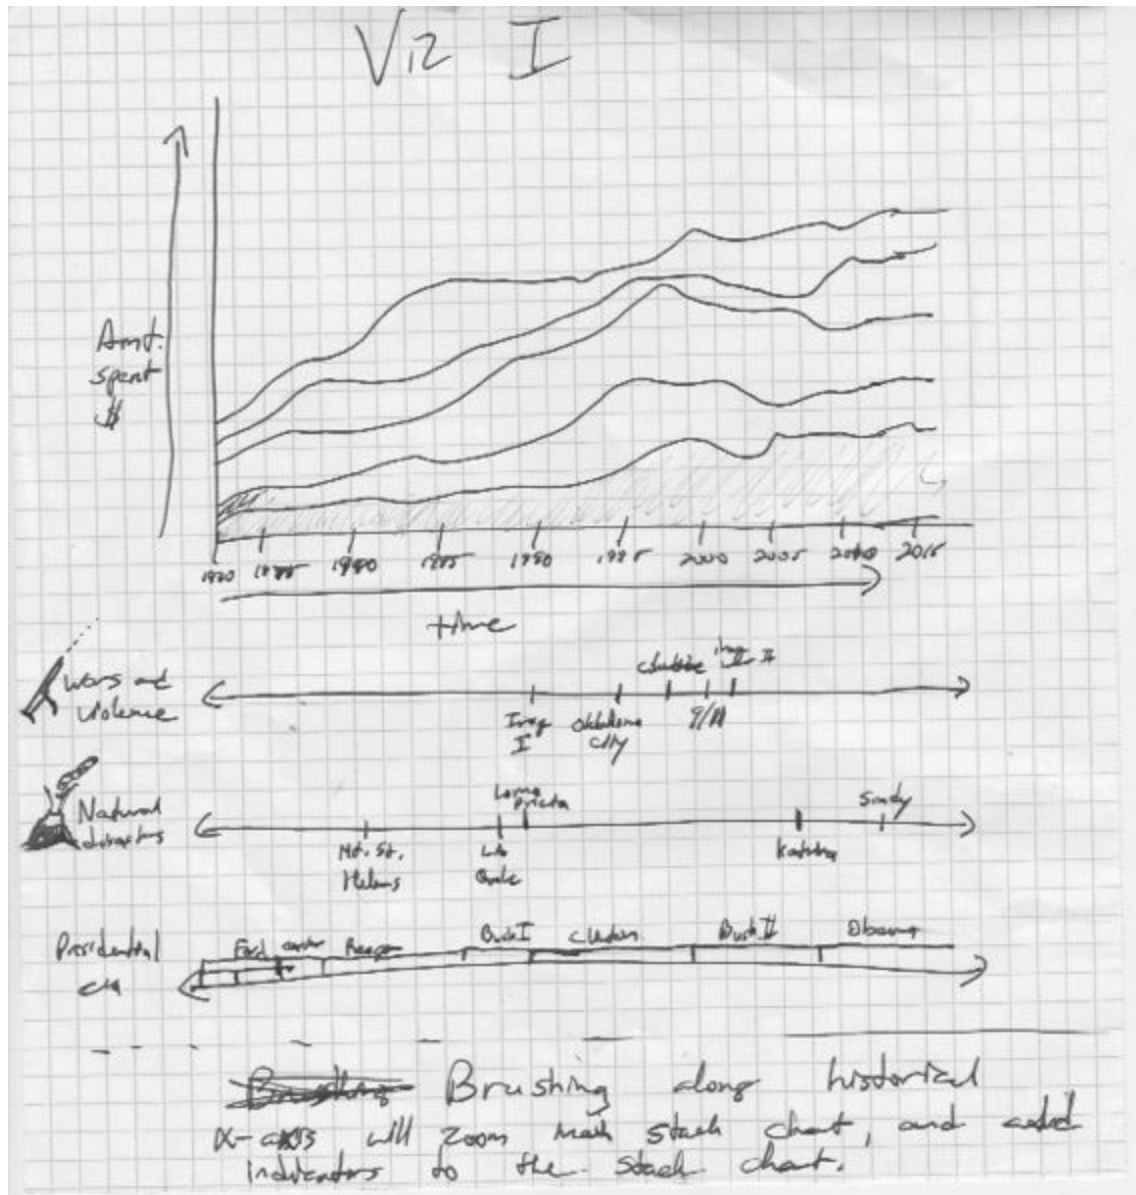 Viz I
Amt.
spent
$
1970 1975 1980 1985 1990 1995 2000 2005 2010 2015
time
Wars and
violence
Iraq II
Iraq
I
Oklahoma
City
9/11
Natural
disasters
Loma
Prieta
Sandy
Mt. St.
Helens
LA
Quake
Katrina
Presidential
era
Ford Carter Reagan Bush I Clinton Bush II Obama
Brushing along historical
x-axis will zoom main stack chart, and add
indicators to the stack chart.